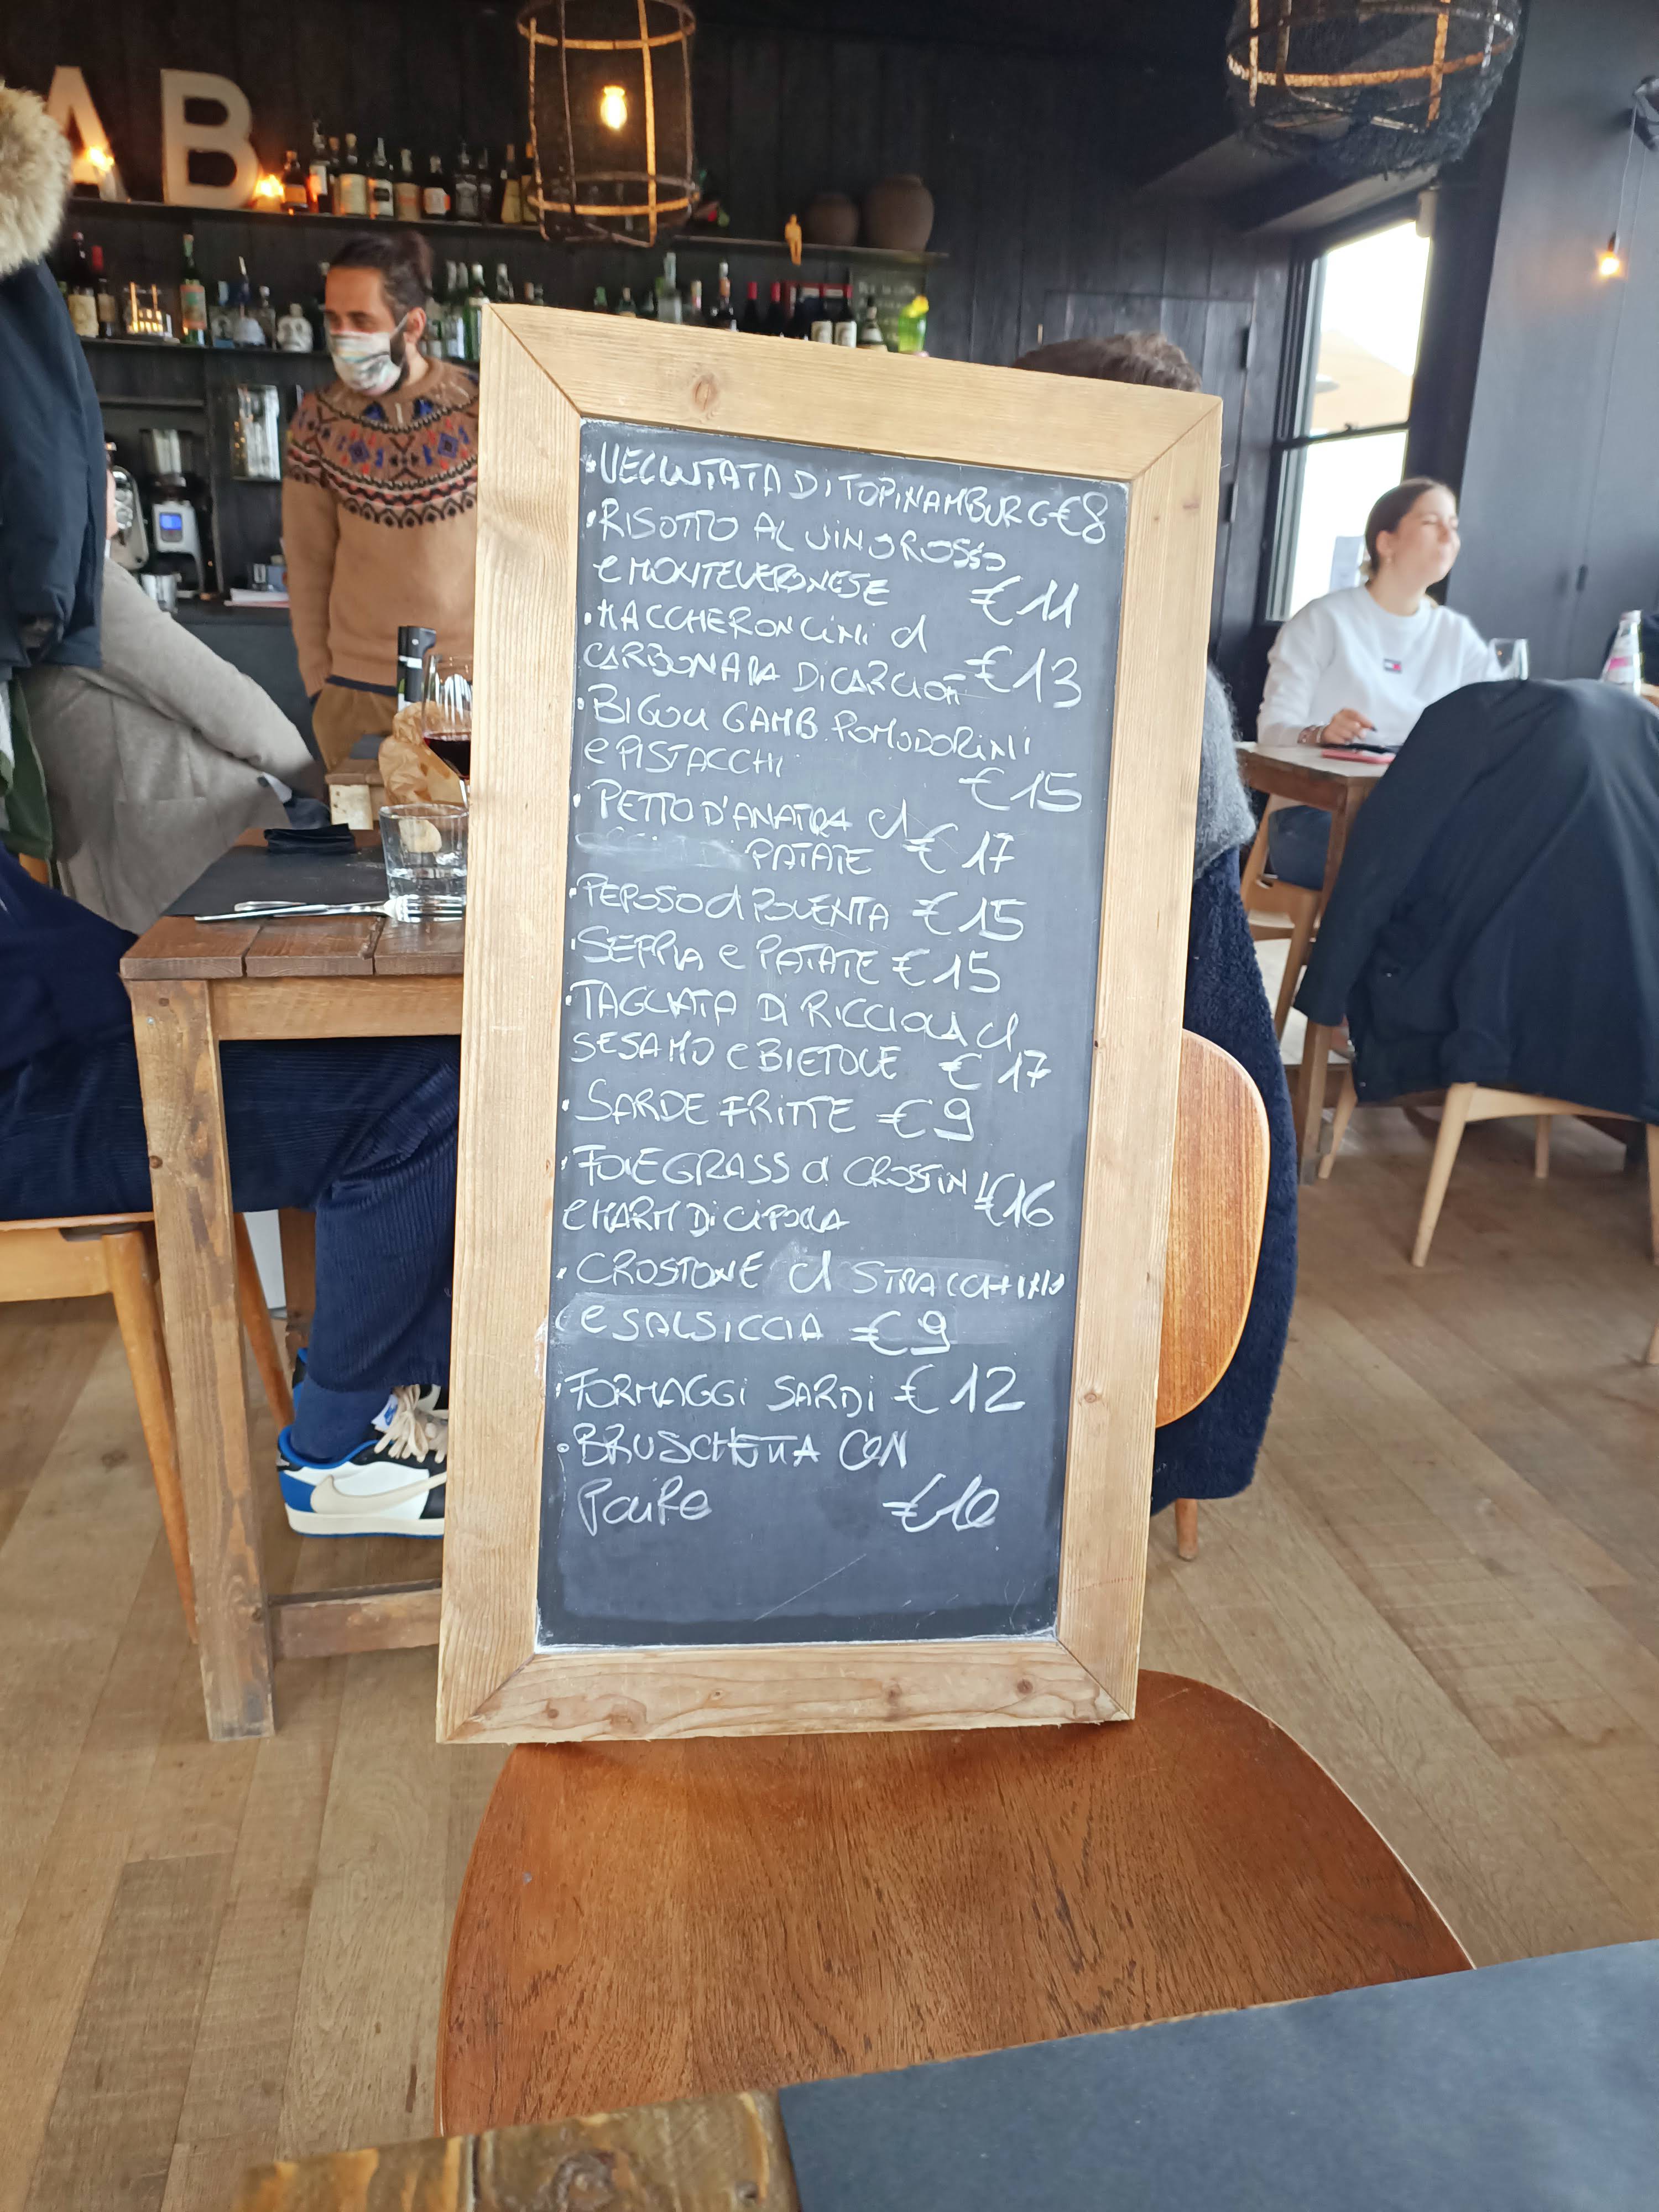 AB
·VELLUTATA DI TOPINAMBUR G€8
·RISOTTO AL VINO ROSSO
e MONTEVERONESE €11
·MACCHERONCINI cl
CARBONARA DI CARCIOFI €13
·BIGOLI GAMB. POMODORINI
e PISTACCHI €15
·PETTO D'ANATRA cl €17
PATATE
·PEPOSO cl POLENTA €15
·SEPPIA e PATATE €15
·TAGLIATA DI RICCIOLA cl
SESAMO e BIETOLE €17
·SARDE FRITTE €9
·FOIEGRASS cl CROSTINI €16
e MARM DI CIPOLLA
·CROSTONE cl STRACCHINO
e SALSICCIA €9
·FORMAGGI SARDI €12
·BRUSCHETTA CON
€10